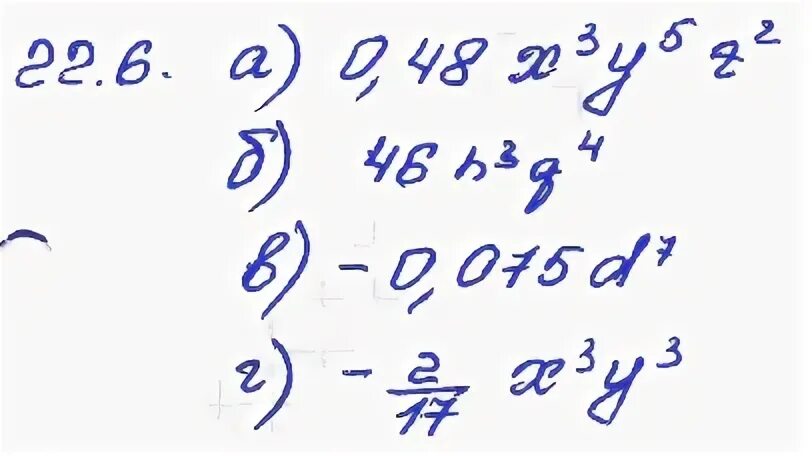 22.6. а) 0,48 x³y⁵z²
б) 46 n³q⁴
в) -0,075 d⁷
г) -2/17 x³y³